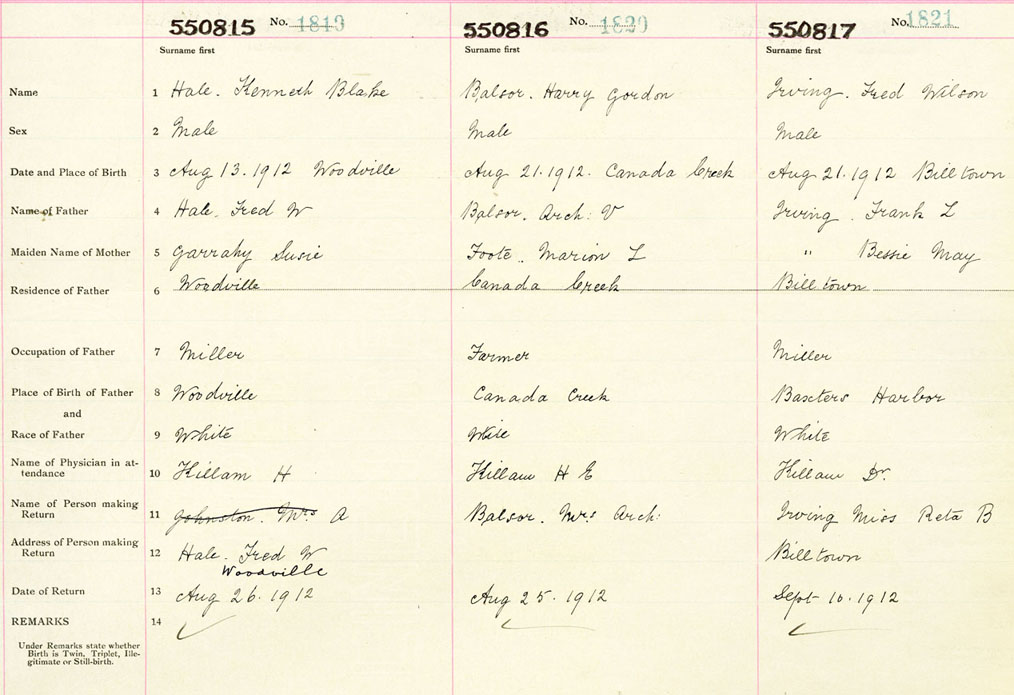 550815 No. 1819 550816 No. 1820 550817 No. 1821
Surname first Surname first Surname first
Name 1 Hale. Kenneth Blake Balsor. Harry Gordon Irving. Fred Wilson
Sex 2 Male Male Male
Date and Place of Birth 3 Aug 13.1912 Woodville Aug 21.1912. Canada Creek Aug 21.1912 Billtown
Name of Father 4 Hale. Fred W Balsor. Arch: V Irving. Frank L
Maiden Name of Mother 5 Garrahy Susie Foote.. Marion L " Bessie May
Residence of Father 6 Woodville Canada Creek Billtown
Occupation of Father 7 Miller Farmer Miller
Place of Birth of Father 8 Woodville Canada Creek Baxters Harbor
and
Race of Father 9 White White White
Name of Physician in at-
tendance 10 Killam H Killam H E Killam Dr.
Name of Person making
Return 11 Johnston. Mrs A Balsor. Mrs Arch: Irving Miss Reta B
Address of Person making
Return 12 Hale. Fred W Billtown
Woodville
Date of Return 13 Aug 26.1912 Aug 25.1912 Sept 10.1912
REMARKS 14
Under Remarks state whether
Birth is Twin, Triplet, Ille-
gitimate or Still-birth.